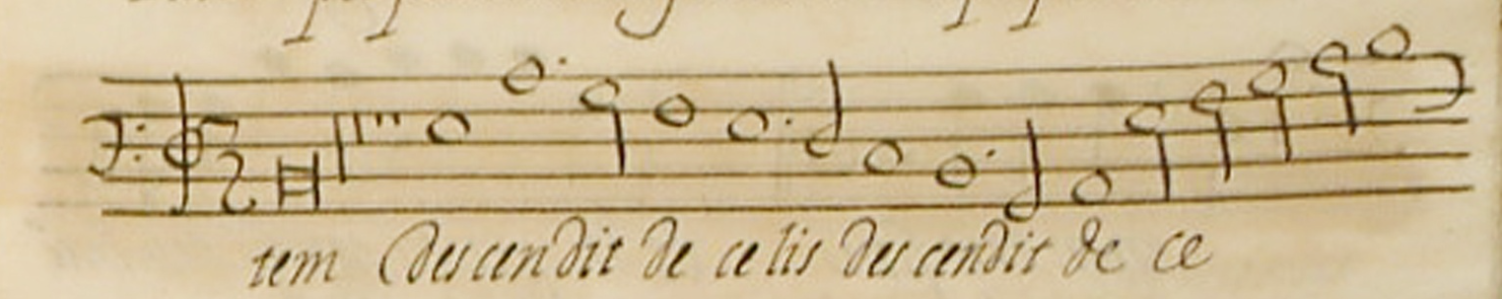 tem Descendit de celis descendit de ce